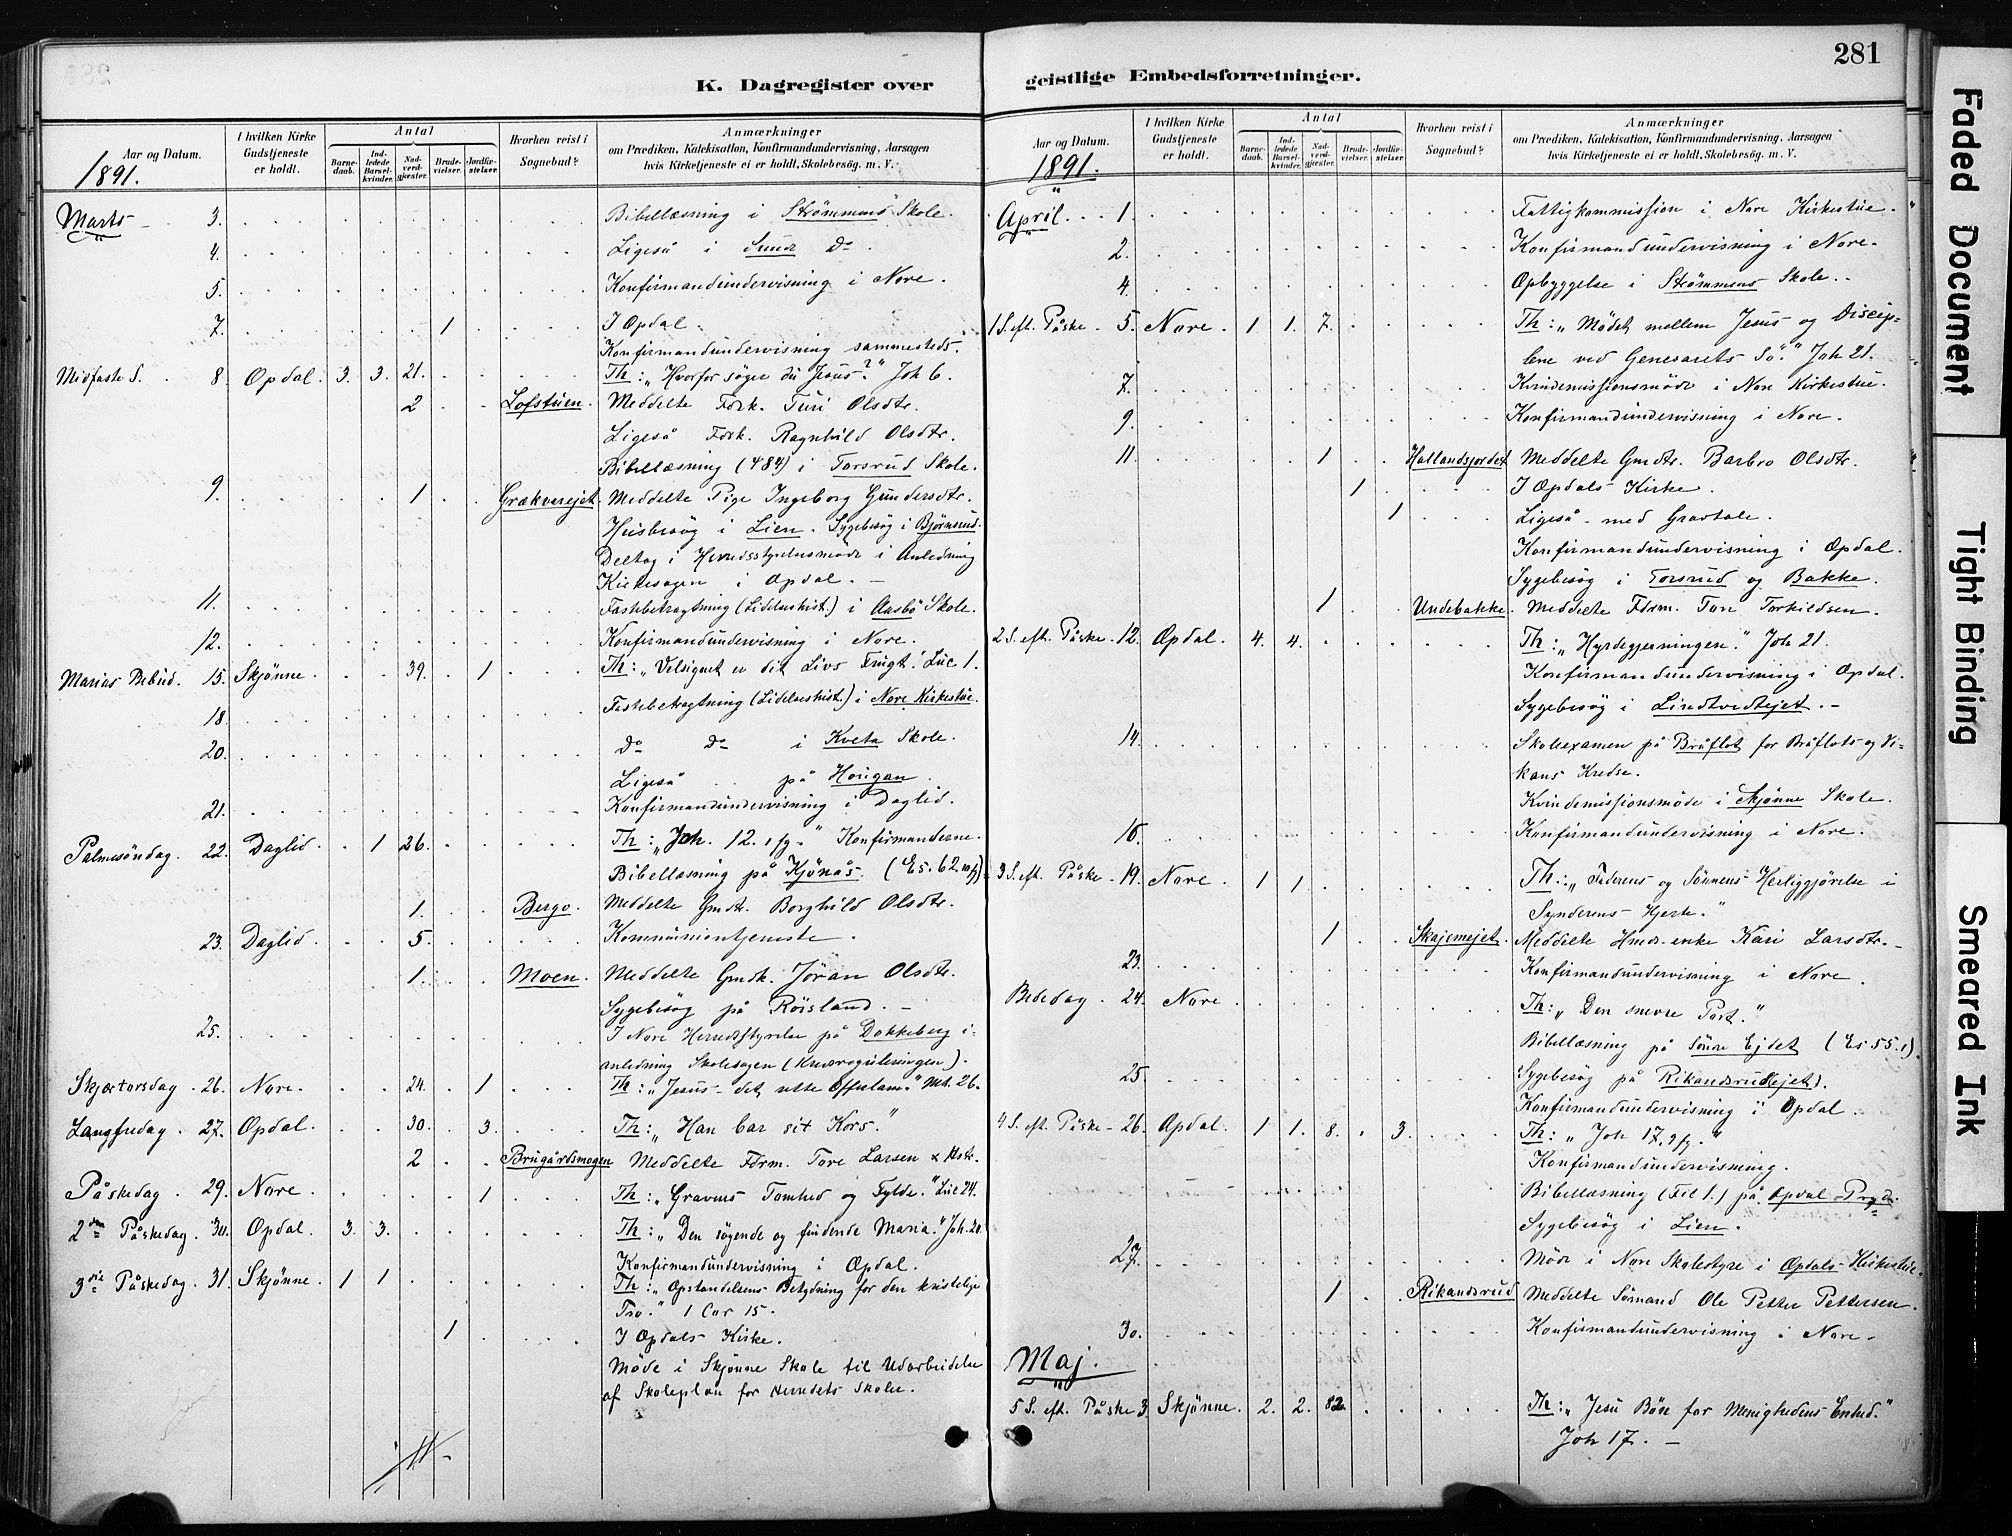 281
K. Dagregister over
Aar og Datum.
I hvilken Kirke Gudstjeneste er holdt.
Antal
Barnedaab.
Indledede Barselkvinder.
Nadverdgjester.
Brudevielser.
Jordfæstelser.
Hvorhen reist i Sognebud?
Anmærkninger
om Prædiken, Katekisation, Konfirmandundervisning, Aarsagen
hvis Kirketjeneste ei er holdt, Skolebesög m. V.
1891.
Marts 3. Bibellæsning i Strømmens Skole.
4. Ligeså i Sund Do.
5. Konfirmandundervisning i Nore.
7. 1 I Opdal.
Konfirmandundervisning sammesteds.
Midfaste S. 8. Opdal. 3. 3. 21. Th: „Hvorfor søger du Jesus?" Joh 6.
2 Lofstuen. Meddelte Fdrk. Turi Olsdtr.
Ligeså Fdrk. Ragnhild Olsdtr.
Bibellæsning (484) i Torsrud Skole.
9. 1 Grækverejet. Meddelte Pige Ingeborg Gundersdtr.
Husbesøg i Lien. Sygebesøg i Bjørnsrud.
Deltog i Herredsstyrelsesmøde i Anledning
Kirkesagen i Opdal. –
11. Fastebetragtning (Lidelseshist.) i Aasbø Skole.
12. Konfirmandundervisning i Nore.
Marias Bebud. 15. Skjønne. 39. 1 Th: „Velsignet er dit Livs Frugt." Luc 1.
18. Fastebetragtning (Lidelseshist.) i Nore Kirkestue.
20. Do Do i Kveta Skole.
Ligeså på Hougan.
21. Konfirmandundervisning i Daglid.
Palmesöndag. 22. Daglid. 1 26. Th: „Joh. 12. 1 fg." Konfirmanderne.
Bibellæsning på Kjönås. (Es. 62. 10 fg)
1. Bergo. Meddelte Gmdk. Borghild Olsdtr.
23. Daglid. 5. Kommuniontjeneste.
1. Moen. Meddelte Gmdk. Jöran Olsdtr.
Sygebesøg på Röisland. –
25. I Nore Herredsstyrelse på Dokkeberg i
anledning Skolesagen (Kredsreguleringen).
Skjærtorsdag 26. Nore. 24. 1 Th: „Jesus – det rette Offerlam." Mt. 26.
Langfredag. 27. Opdal. 30. 3. Th: „Han bar sit Kors."
2 Brugårdsmogen Meddelte Fdrm. Tore Larsen & Hstr.
Påskedag. 29. Nore. 1 Th: „Gravens Tomhed og Fylde." Luc 24.
2den Påskedag. 30. Opdal. 3. 3. Th: „Den søgende og findende Maria." Joh. 20.
Konfirmandundervisning i Opdal.
3die Påskedag. 31. Skjønne. 1 1 Th: „Opstandelsens Betydning for den kristelige
Tro." 1 Cor 15.
1 I Opdals Kirke.
Møde i Skjønne Skole til Udarbeidelse
af Skoleplan for Herredets Skoler.
geistlige Embedsforretninger.
Aar og Datum.
I hvilken Kirke Gudstjeneste er holdt.
Antal
Barnedaab.
Indledede Barselkvinder.
Nadverdgjester.
Brudevielser.
Jordfæstelser.
Hvorhen reist i Sognebud?
Anmærkninger
om Prædiken, Katekisation, Konfirmandundervisning, Aarsagen
hvis Kirketjeneste ei er holdt, Skolebesög m. V.
1891.
April. 1. Fattigkommission i Nore Kirkestue.
2. Konfirmandundervisning i Nore.
4. Opbyggelse i Strømmens Skole.
1 S. eft. Påske. 5. Nore. 1 1. 7. Th: „Mødet mellem Jesus og Discip-
lene ved Genesarets Sø." Joh 21.
7. Kvindemissionsmøde i Nore Kirkestue.
9. Konfirmandundervisning i Nore.
11. 1 Hallandsjordet Meddelte Gmdtr. Barbro Olsdtr.
1 I Opdals Kirke.
1 Ligeså – med Gravtale.
Konfirmandundervisning i Opdal.
Sygebesøg i Torsrud og Bakke.
1 Undebakke. Meddelte Fdrm. Tore Torkildsen.
2 S. eft. Påske. 12. Opdal. 4. 4. Th: „Hyrdegjerningen." Joh 21.
Konfirmandundervisning i Opdal.
Sygebesøg i Lindtvedtejet. –
14. Skoleexamen på Bråflot for Bråflots og Vi-
kans Kredse.
Kvindemissionsmøde i Skjønne Skole.
16. Konfirmandundervisning i Nore.
3 S. eft. Påske 19. Nore. 1 1. Th: „Faderens og Sønnens Herliggjørelse i
Synderens Hjerte."
1 Skajemejet. Meddelte Hmds.enke Kari Larsdtr. –
23. Konfirmandundervisning i Nore.
Bededag. 24. Nore. Th: „Den snevre Port."
Bibellæsning på Söndre Ejdet (Es 55. 1).
25. Sygebesøg på Rikandsrudejet).
Konfirmandundervisning i Opdal.
4 S. eft. Påske 26. Opdal. 1 1. 8. 3. Th: „Joh 17. 9 fg."
Konfirmandundervisning.
Bibellæsning (Fil 1.) på Opdal
Sygebesøg i Lien.
27. Møde i Nore Skolestyre i Opdals Kirkestue.
1 Rikandsrud Meddelte Sømand Ole Petter Pettersen.
30. Konfirmandundervisning i Nore.
Maj.
5 S. eft. Påske 3. Skjønne. 2. 2. 82. Th: „Jesu Bøn for Menighedens Enhed."
Joh 17. –
Faded Document
Tight Binding
Smeared Ink